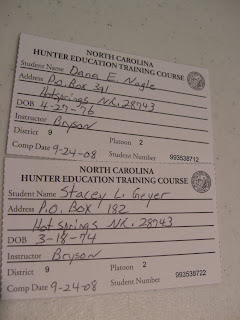 NORTH CAROLINA
HUNTER EDUCATION TRAINING COURSE
Student Name Dana E Nagle
Address P.O. Box 391
Hotsprings NC. 28743
DOB 4-27-76
Instructor Bryson
District 9 Platoon 2
Comp Date 9-24-08 Student Number 993538712
NORTH CAROLINA
HUNTER EDUCATION TRAINING COURSE
Student Name Stacey L. Geyer
Address P.O. Box 182
Hot Springs NC. 28743
DOB 3-18-74
Instructor Bryson
District 9 Platoon 2
Comp Date 9-24-08 Student Number 993538722